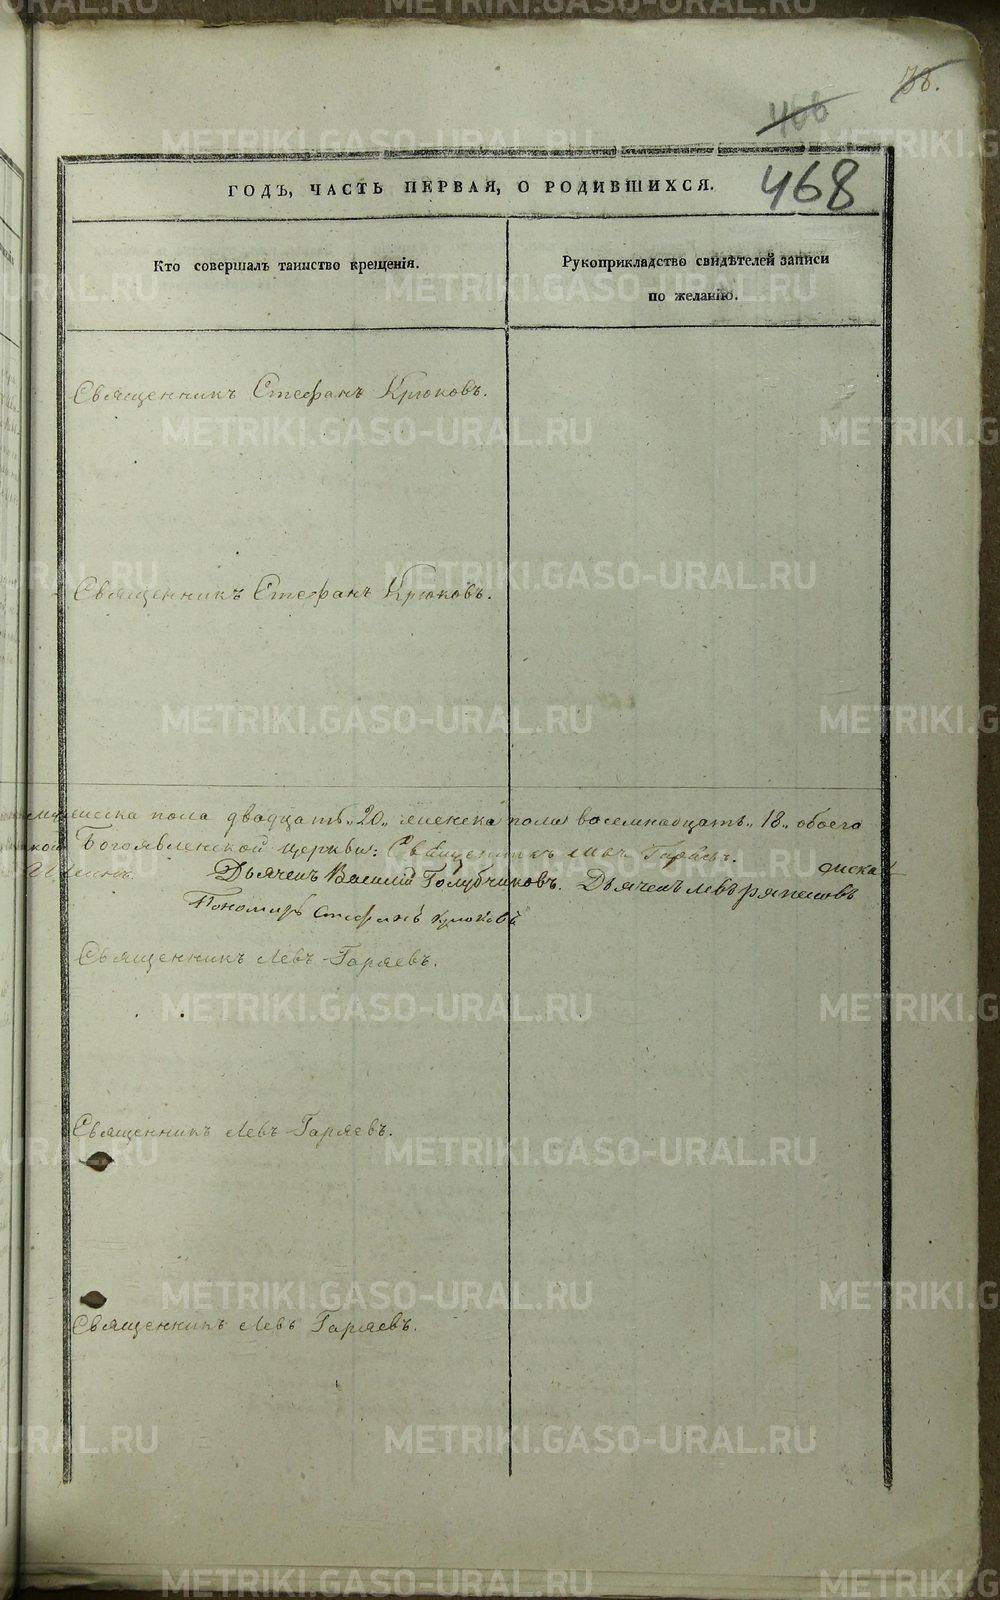 78.
466
468
ГОДЪ, ЧАСТЬ ПЕРВАЯ, О РОДИВШИХСЯ.
Кто совершалъ таинство крещенія.
Рукоприкладство свидѣтелей записи
по желанію.
Священникъ Стефанъ Крюковъ.
Священникъ Стефанъ Крюковъ.
пола двадцать „20„ женска пола восемнадцать „18„ обоего
Богоявленской церкви: Священникъ Левъ Гаряевъ.
Дьячекъ Василій Голубчиковъ. Дьячекъ Левъ
Пономарь Стефанъ Крюковъ
Священникъ Левъ Гаряевъ.
Священникъ Левъ Гаряевъ.
Священникъ Левъ Гаряевъ.
METRIKI.GASO-URAL.RU